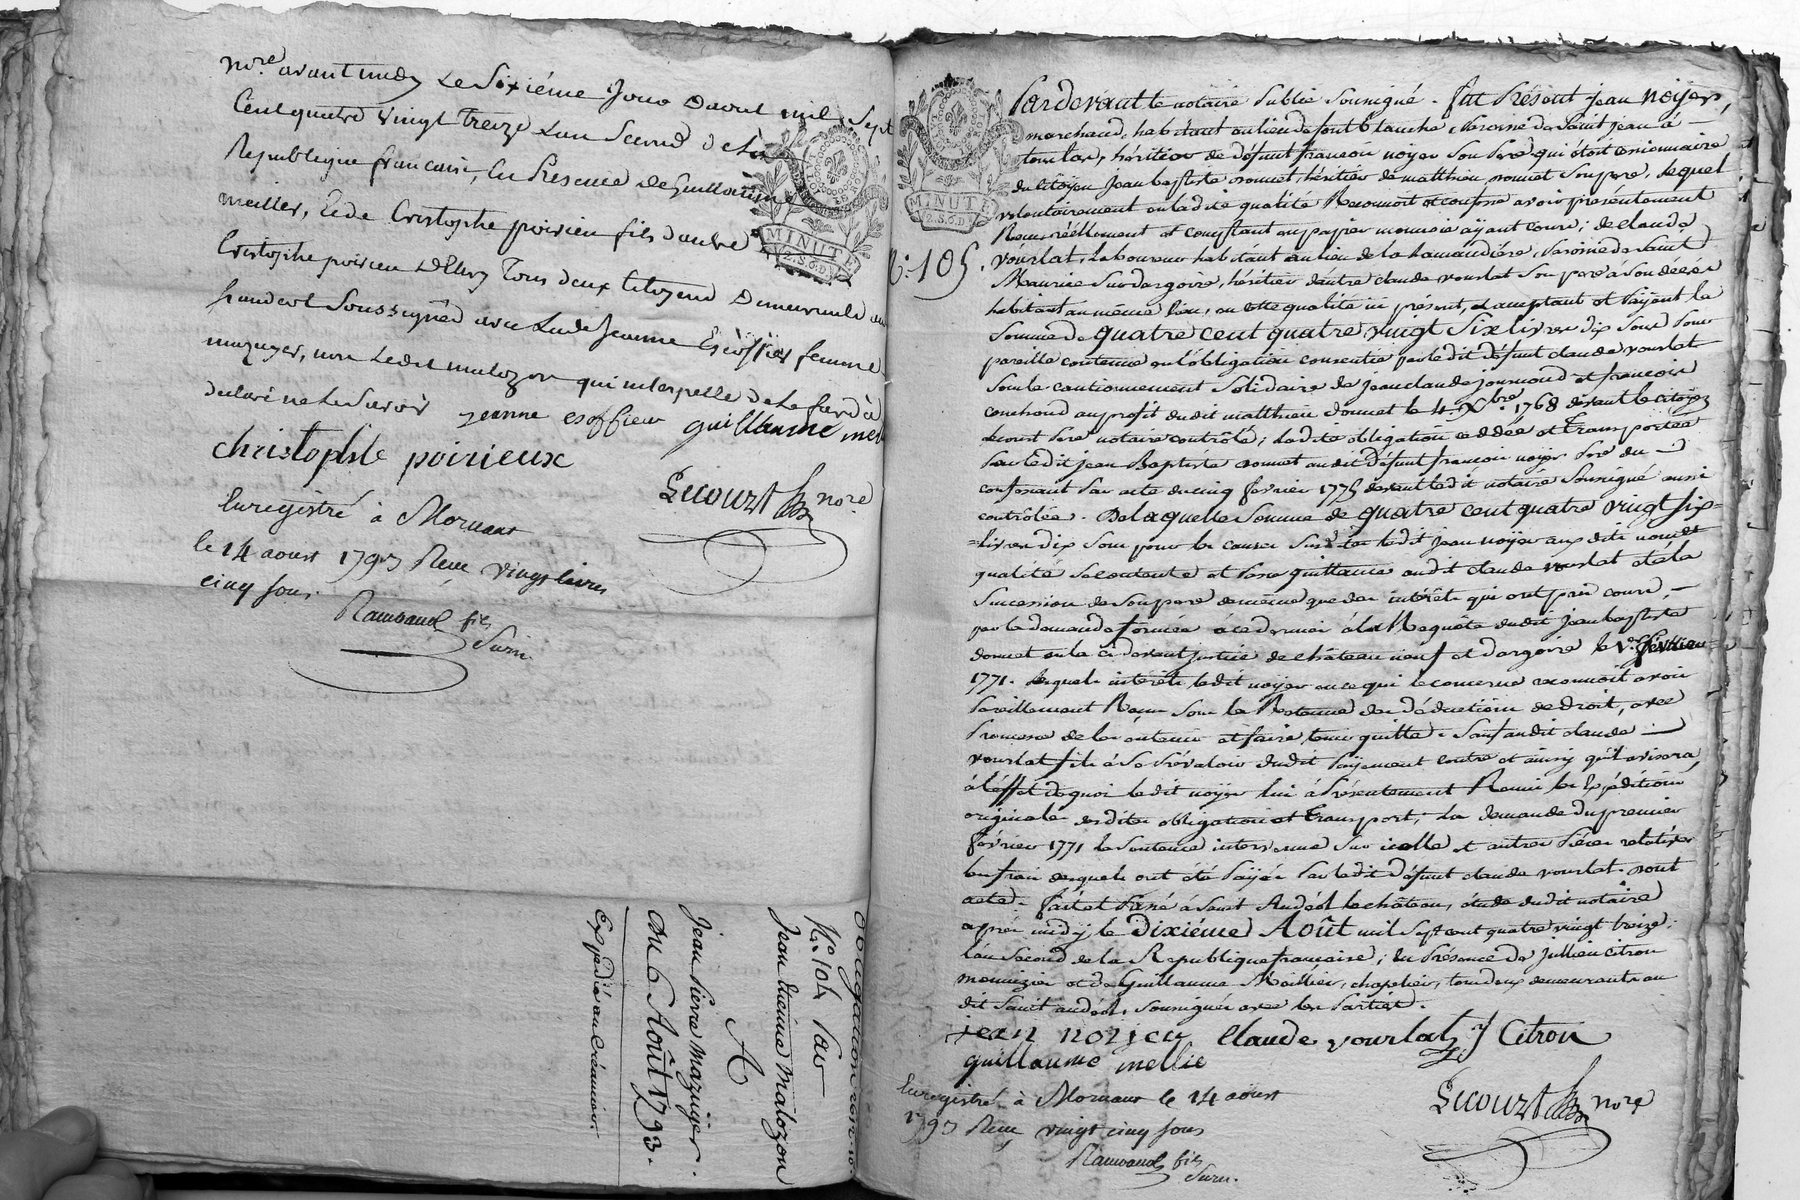 nore. avant midy Le Sixiéme Jour Daout mil Sept
Cent quatre Vingt Treize Lan Second de la
Republique francaise, En Presence de Guillaume
meiller, Et de Cristophe poirieu fils d'autre
Cristophe poirieu
Tous deux Citoyens Demeurants au
Soussignés avec Ladte Jeanne Escoffier femme
mazuyer, non Ledit malozon qui interpellé de Le faire à
declaré ne Le Savoir jeanne esoffieu guillaume mel
christophle poirieux
Lecourt nore.
Enregistré à Mornant
le 14 aoust 1793 Reçu vingt livres
cinq sous.
Rambaud fils
Surn.
MINUTE
2.S.6.D.
Obligation
No. 104 Par
Jean Etienne Malozon
A
Jean Pierre Mazuyer.
Du 6 Août 1793.
Expédié au Créancier.
MINUTE
2.S.6.D.
No. 105.
Pardevant le notaire Public Soussigné. fut Présent jean Noyer,
marchand, habitant au lieu de font blanche, Paroisse de Saint jean à
touslas, héritier de défunt francois noyer Son Pere qui étoit cesionnaire
du Citoyen Jean baptiste donnet, héritier de matthieu donnet Son pere, Lequel
volontairement en ladite qualité Reconnoit et confesse avoir présentement
Reçu réellement et comptant en papier monnoie ayant cours; de Claude
vourlat, laboureur habitant au lieu de la hamardiére, Paroisse de Saint
Maurice Sur dargoire, héritier d'autre claude vourlat Son pere à Son décés
habitant au même lieu, en cette qualité ici présent, et acceptant et Payant la
Somme de quatre cent quatre vingt Six livres dix Sous Pour
pareille contenue en l'obligation consentie par ledit défunt claude vourlat
Sous le cautionnement Solidaire de jean claude journoud et francois
couchoud au profit dudit matthieu donnet le 4. Xbre. 1768 devant le citoyen
Lecourt Pere notaire contrôlé; ladite obligation cédée et transportée
Par ledit jean Baptiste donnet audit défunt francois noyer Pere du
confessant Par acte du cinq février 1775 devant ledit notaire Soussigné aussi
contrôlée. De laquelle Somme de quatre cent quatre vingt six
livres dix Sous pour les causes Susd. ledit jean noyer aux dits noms et
qualité Se contente et Passe quittance audit claude vourlat et à la
Succession de Son pere de même que des intérêts qui ont pris cours,
par la demande formée à ce dernier à la Requête dudit jean baptiste
donnet en la ci devant justice de château neuf et dargoire le 1er. février
1771. desquels intérêts, ledit noyer en ce qui le concerne reconnoit avoir
Pareillement Reçu Sous la Retenue des déductions de droit, avec
Promesse de les en tenir et faire tenir quitte. Sauf audit claude
vourlat fils à Se Prévaloir dudit Payement contre et ainsy qu'il avisera,
à l'effet dequoi ledit noyer lui à Présentement Remis les Expéditions
originales desdites obligation et transport, La demande du premier
février 1771 la Sentence intervenue Sur icelle et autres Piéces relatives
les frais desquels ont été Payés Par ledit défunt claude vourlat. Dont
acte. fait et Passé à Saint Andéol le château, étude dudit notaire
après midy le dixiéme Août mil Sept cent quatre vingt treize,
l'an Second de la République francaise; En Présence de Jullien Citron
menuizier et de Guillaume Meillier, chapelier, tous deux demeurants au
dit Saint andéol, Soussignés avec les Parties.
jean noyer Claude vourlat J Citron
guillaume mellie
Lecourt nore.
Enregistré à Mornant le 14 aoust
1793 Reçu vingt cinq sous
Rambaud fils
Surn.